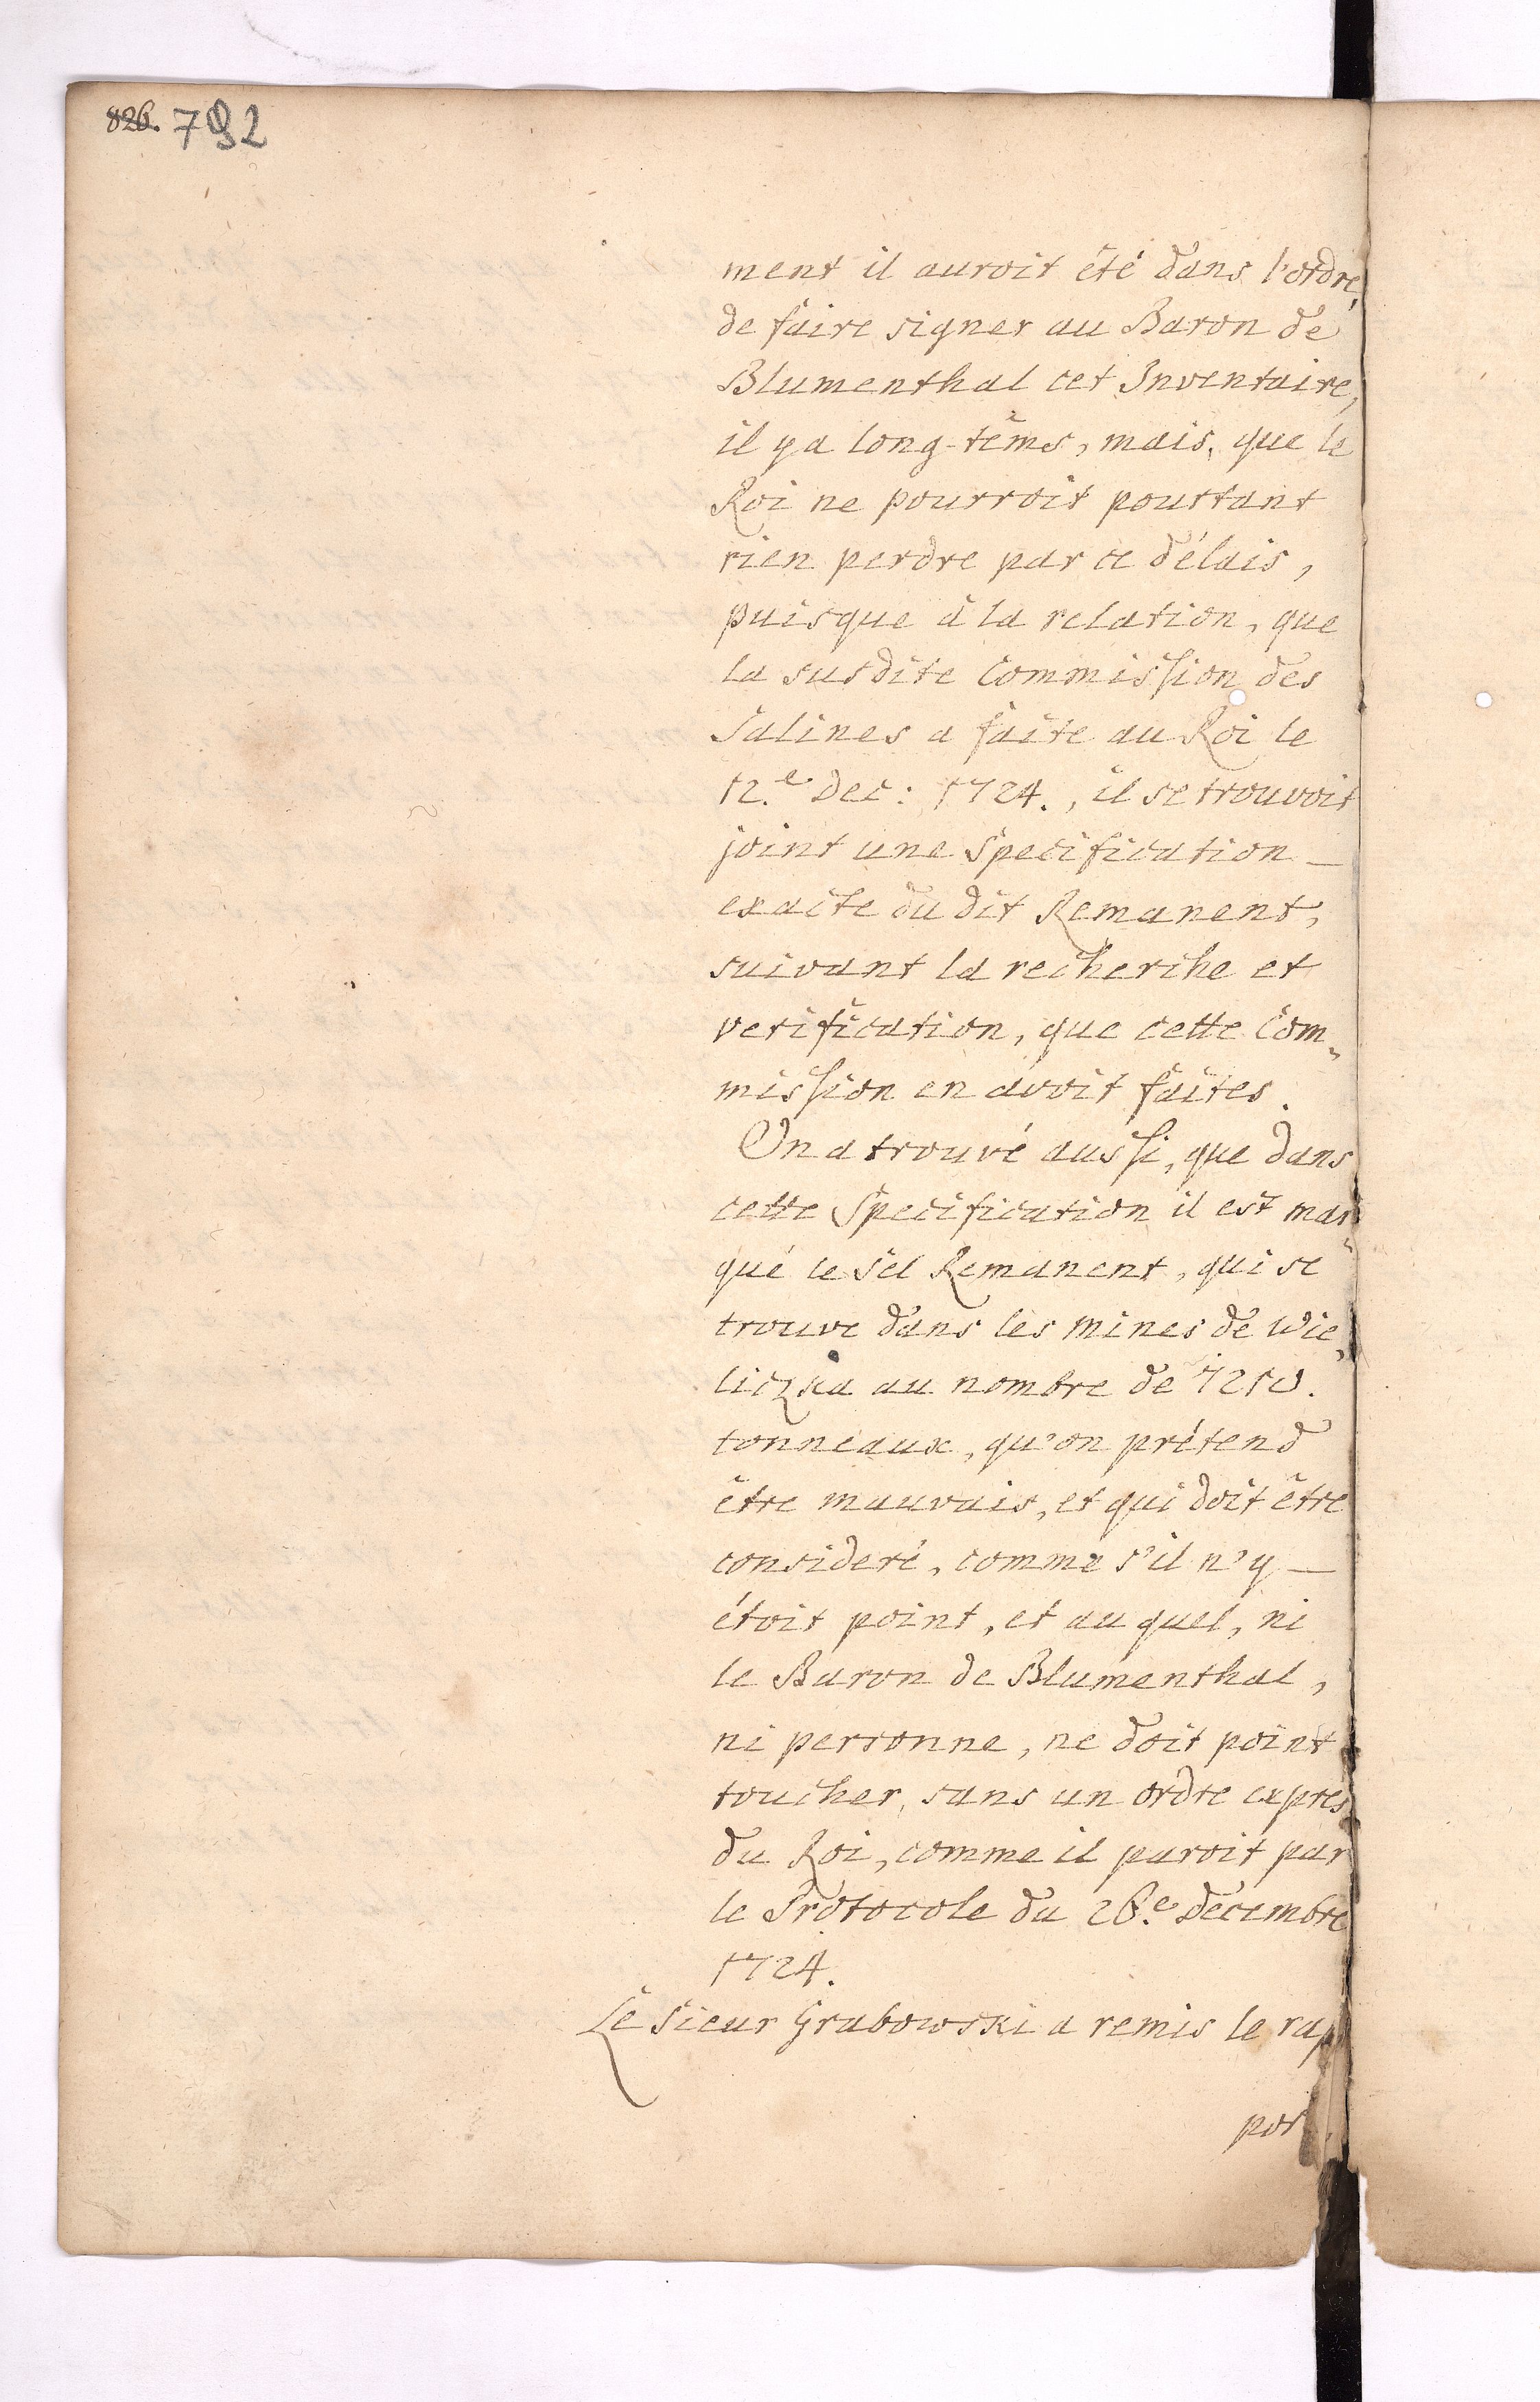 826. 792
ment il auroit été dans l'ordre,
de faire signer au Baron de
Blumenthal cet Inventaire,
il y a long-têms, mais, que le
Roi ne pourroit pourtant
rien perdre par ce délais,
puisque à la relation, que
la susdite Commission des
Salines a faite au Roi le
12.e Dec: 1724., il se trouvoit
joint une Specification
exacte du dit Remanent,
suivant la recherche et
verification, que cette Com-
mission en avoit faites.
On a trouvé aussi, que dans
cette Specification il est mar-
qué le Sel Remanent, qui se
trouve dans les mines de Wie-
liczka au nombre de 7210.
tonneaux, qu'on prétend
être mauvais, et qui doit être
consideré, comme s'il n'y
étoit point, et au quel, ni
le Baron de Blumenthal,
ni personne, ne doit point
toucher, sans un ordre exprès
du Roi, comme il paroit par
le Protocole du 26.e Décembre
1724.
Le Sieur Grabowski a remis le rap
port